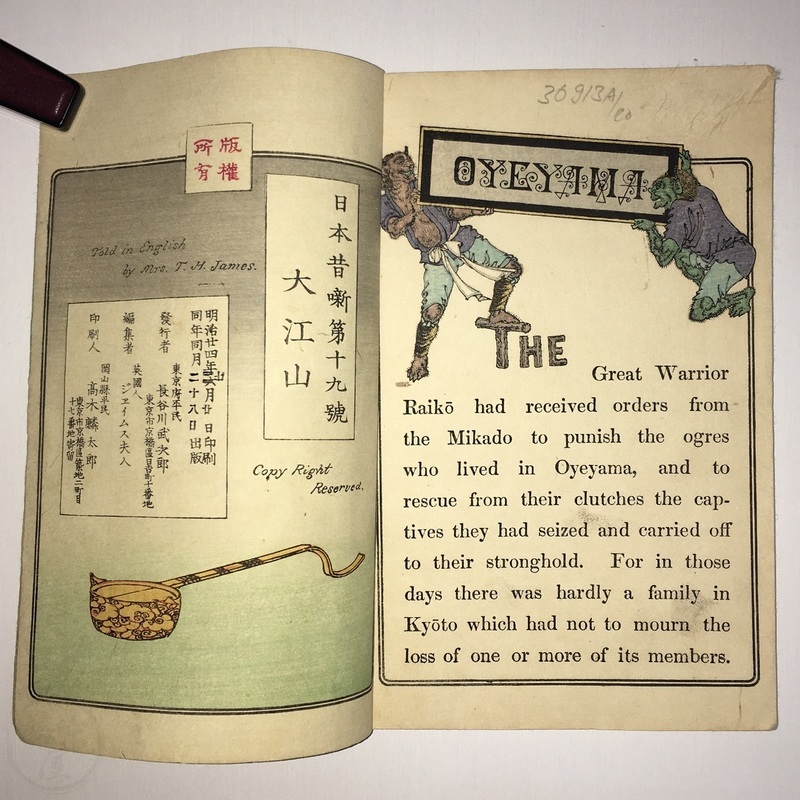 版權
所有
日本昔噺第十九號
大江山
Told in English
by Mrs. T. H. James.
明治廿四年
月廿日印刷
同年同月二十八日出版
發行者
東京府平民
長谷川武次郎
東京市京橋區日吉町十番地
編集者
英國人
ジエイムス夫人
印刷人
岡山縣平民
高木麟太郎
東京市京橋區築地二町目
十七番地寄留
Copy Right
Reserved.
30913A/
OYEYAMA
THE
Great Warrior
Raikō had received orders from
the Mikado to punish the ogres
who lived in Oyeyama, and to
rescue from their clutches the cap-
tives they had seized and carried off
to their stronghold. For in those
days there was hardly a family in
Kyōto which had not to mourn the
loss of one or more of its members.